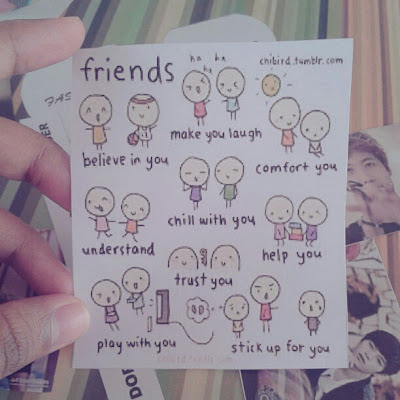 friends
ha ha
ha
chibird.tumblr.com
make you laugh
believe in you
comfort you
chill with you
understand
help you
trust you
play with you
stick up for you
chibird.tumblr.com